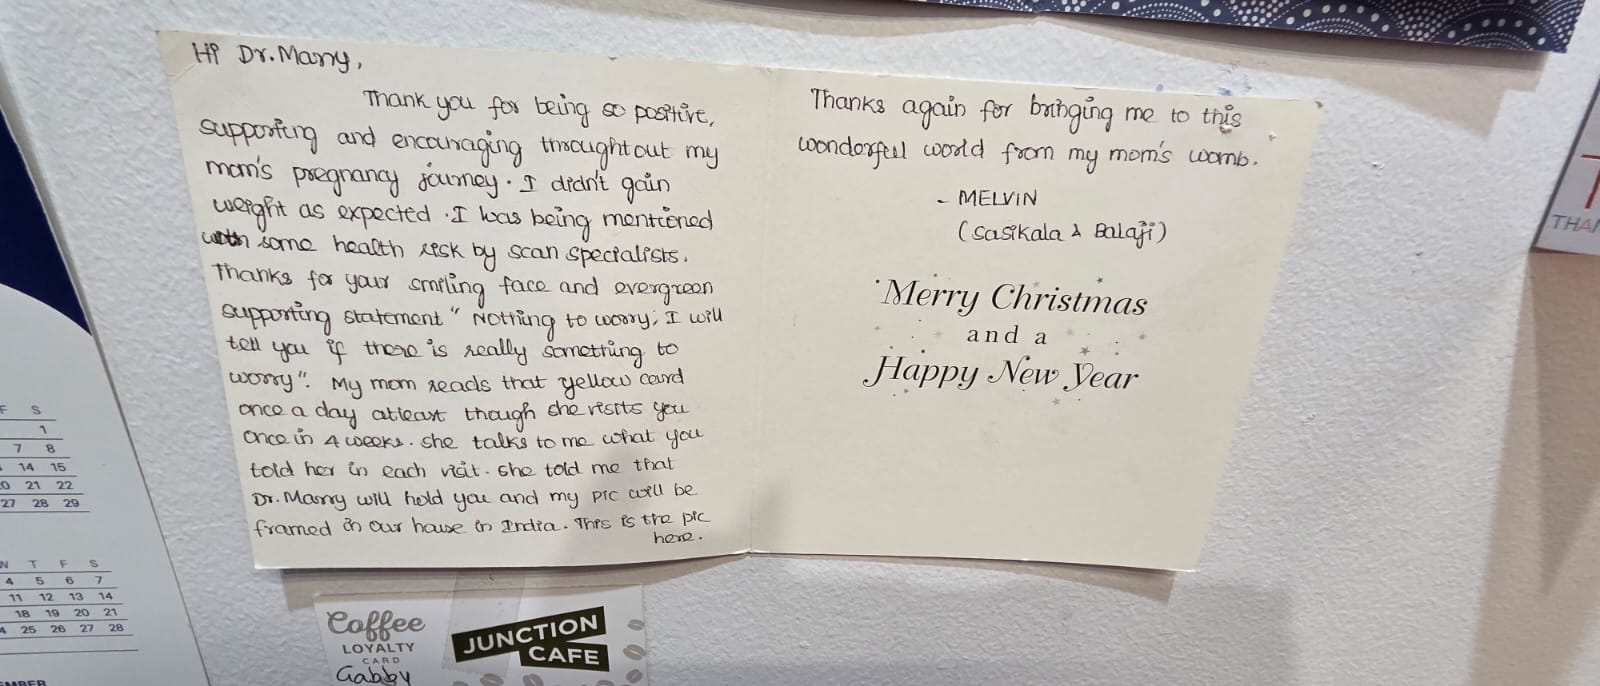 Hi Dr. Marry,
Thank you for being so positive,
supporting and encouraging throughtout my
mom's pregnancy journey. I didn't gain
weight as expected. I was being mentioned
with some health risk by scan specialists.
Thanks for your smiling face and evergreen
supporting statement " Nothing to worry; I will
tell you if there is really something to
worry". My mom reads that yellow card
once a day atleast though she visits you
once in 4 weeks. she talks to me what you
told her in each visit. she told me that
Dr. Marry will hold you and my pic will be
framed in our house in India. This is the pic
here.
Thanks again for bringing me to this
wonderful world from my mom's womb.
- MELVIN
(Sasikala & Balaji)
Merry Christmas
and a
Happy New Year
F S
1
7 8
14 15
21 22
27 28 29
T F S
4 5 6 7
11 12 13 14
18 19 20 21
25 26 27 28
Coffee
LOYALTY
CARD
Gabby
JUNCTION
CAFE